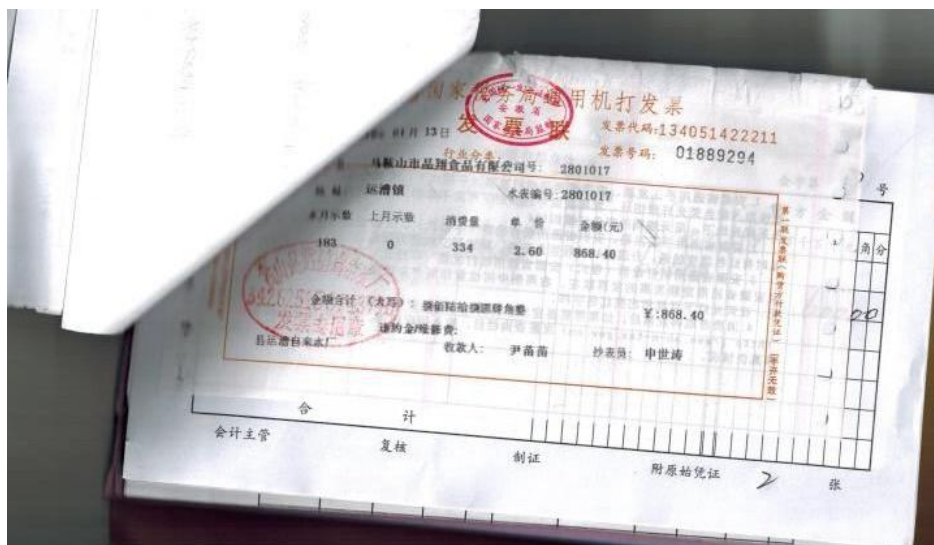 国家税务局通用机打发票
发票联
月 13日
发票代码:134051422211
行业分类:
发票号码: 01889294
马鞍山市品翔食品有限公司号: 2801017
运漕镇 水表编号:2801017
本月示数 上月示数 消费量 单价 金额(元)
183 0 334 2.60 868.40
金额合计 (大写): 捌佰陆拾捌圆肆角整 ¥:868.40
违约金/维修费:
县运漕自来水厂 收款人: 尹苗苗 抄表员: 申世涛
第一联发票联(购货方付款凭证)(手开无效)
发票专用章
号
金额
角分
00
合 计
会计主管 复核 制证 附原始凭证 2 张